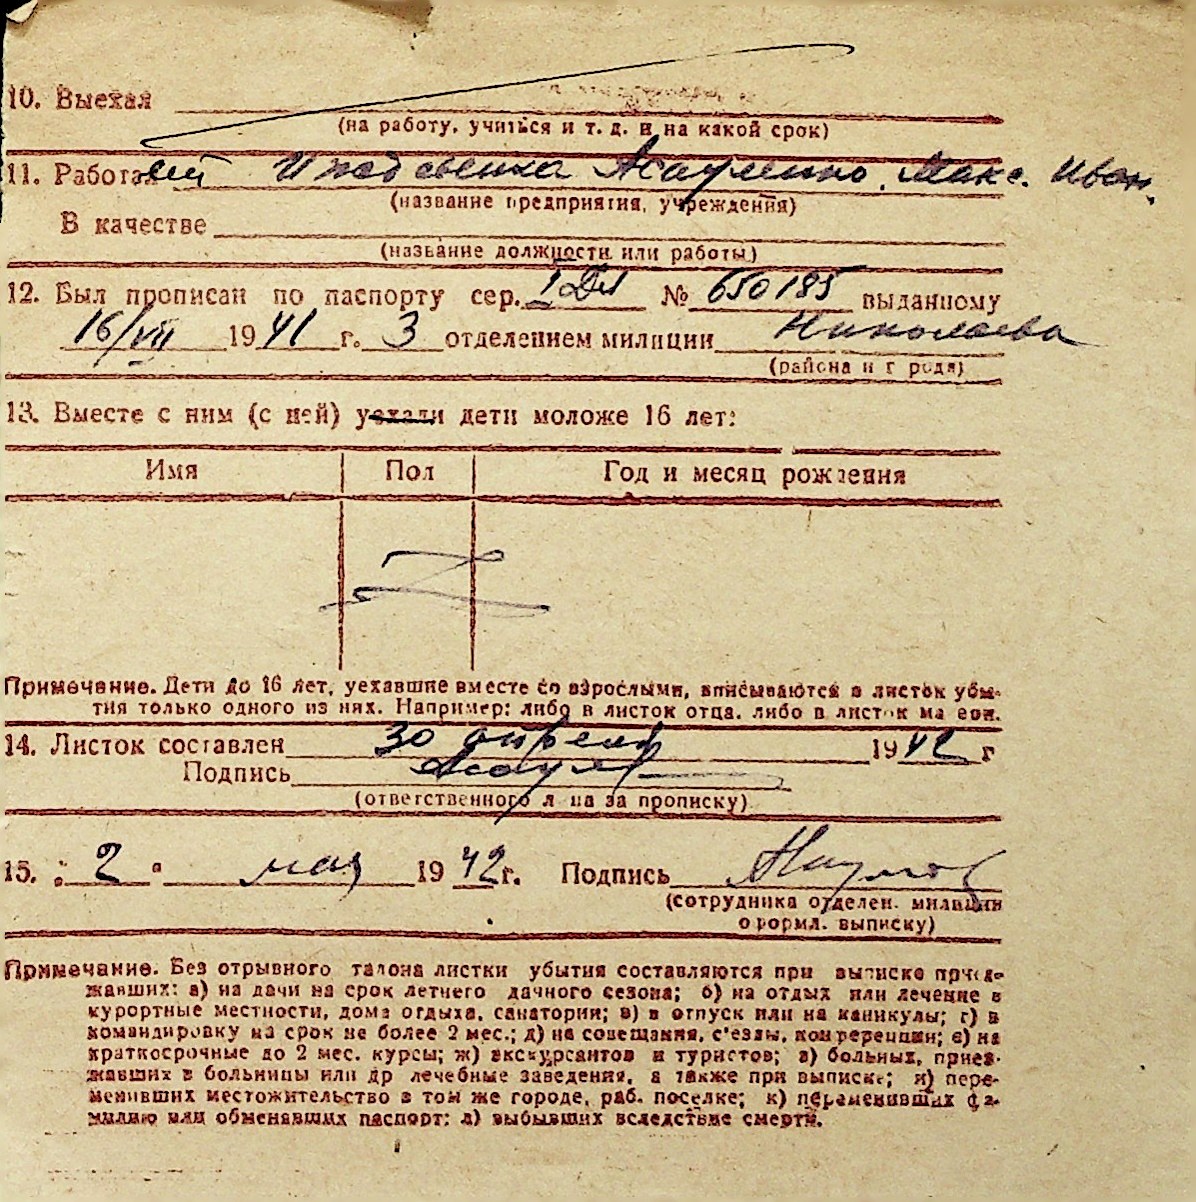 10. Выехал
(на работу, учиться и т. д. и на какой срок)
11. Работал Иждевенка Асауленко Макс. Иван.
(название предприятия, учреждения)
В качестве
(название должности или работы)
12. Был прописан по паспорту сер. № 650185 выданному
16/VII 1941 г. 3 отделением милиции Николаева
(района и г рода)
13. Вместе с ним (с ней) уехали дети моложе 16 лет:
Имя Пол Год и месяц рождения
Z
Примечание. Дети до 16 лет, уехавшие вместе со взрослыми, вписываются в листок убы-
тия только одного из них. Например: либо в листок отца, либо в листок ма ери.
14. Листок составлен 30 апреля 1942 г
Подпись
(ответственного л ца за прописку)
15. „ 2 " мая 1942 г. Подпись
(сотрудника отделен. милиции
оформл. выписку)
Примечание. Без отрывного талона листки убытия составляются при выписке приез-
жавших: а) на дачи на срок летнего дачного сезона; б) на отдых или лечение в
курортные местности, дома отдыха, санатории; в) в отпуск или на каникулы; г) в
командировку на срок не более 2 мес.; д) на совещания, с'езды, конференции; е) на
краткосрочные до 2 мес. курсы; ж) экскурсантов и туристов; з) больных, приез-
жавших в больницы или др лечебные заведения, а также при выписке; и) пере-
менивших местожительство в том же городе, раб. поселке; к) переменивших фа-
милию или обменявших паспорт; л) выбывших вследствие смерти.